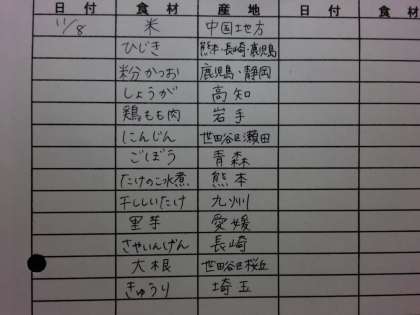 日付 食材 産地 日付 食材
11/8 米 中国地方
ひじき 熊本・長崎・鹿児島
粉かつお 鹿児島・静岡
しょうが 高知
鶏もも肉 岩手
にんじん 世田谷区瀬田
ごぼう 青森
たけのこ水煮 熊本
干ししいたけ 九州
里芋 愛媛
さやいんげん 長崎
大根 世田谷区桜丘
きゅうり 埼玉